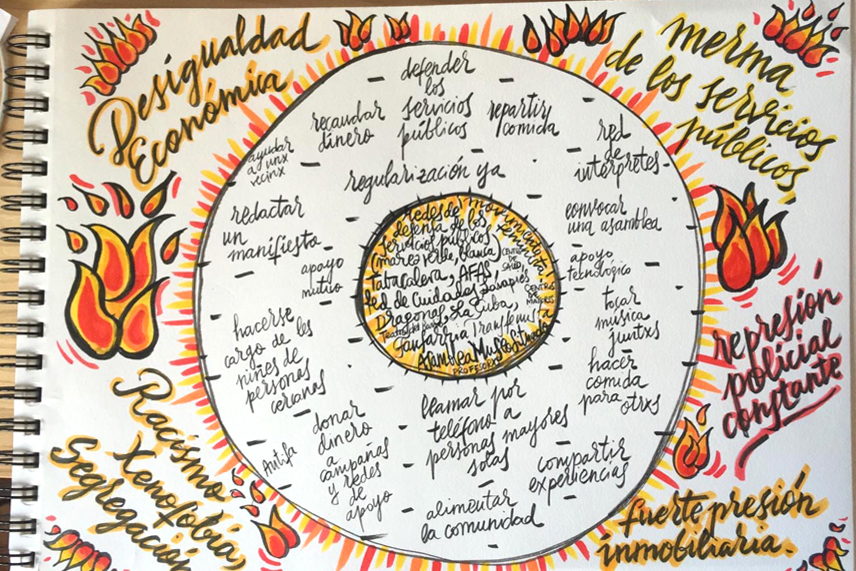 Desigualdad
Económica
merma
de los servicios
públicos
represión
policial
constante
fuerte presión
inmobiliaria.
Racismo
Xenofobia,
Segregación
defender
los
servicios
públicos
recaudar
dinero
repartir
comida
ayudar
a unx
vecinx
red
de
interpretes
regularización ya
redactar
un
manifiesto
convocar
una asamblea
apoyo
mutuo
apoyo
tecnológico
tocar
musica
juntxs
hacerse
cargo de les
niñes de
personas
cercanas
hacer
comida
para otrxs
donar
dinero
a
campañas
y redes
de
apoyo
Antifa
llamar por
teléfono a
personas mayores
solas
compartir
experiencias
alimentar
la comunidad
redes de
defensa de los
servicios públicos
(marea verde, blanca)
movimiento
feminista
CENTROS
DE
SALUD
Tabacalera, AFAS,
Red de Cuidados Lavapies
CENTROS
DE
MAYORES
Dragonas, La Cuba,
Teatro del barrio
fanfarria Transfeminista
Asamblea
PROFESORXS